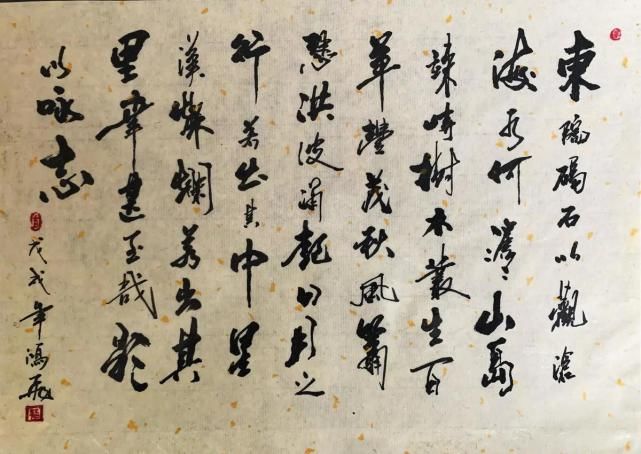 東臨碣石以觀滄
海水何澹々山島
竦峙樹木叢生百
草豐茂秋風蕭
瑟洪波涌起日月之
行若出其中星
漢燦爛若出其
里幸甚至哉歌
以咏志
戊戌年鴻